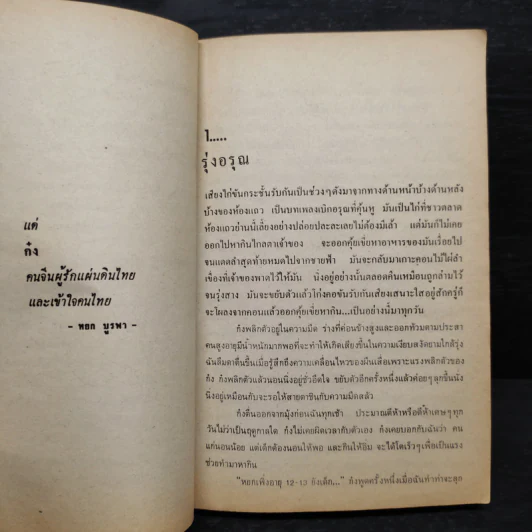 แด่
ก๋ง
คนจีนผู้รักแผ่นดินไทย
และเข้าใจคนไทย
- หยก บูรพา -
1.....
รุ่งอรุณ
เสียงไก่ขันกระชั้นรับกันเป็นช่วงๆดังมาจากทางด้านหน้าบ้างด้านหลัง
บ้างของห้องแถว เป็นบทเพลงเบิกอรุณที่คุ้นหู มันเป็นไก่ที่ชาวตลาด
ห้องแถวย่านนี้เลี้ยงอย่างปล่อยปละละเลยไม่ต้องมีเล้า แต่มันก็ไม่เคย
ออกไปหากินไกลตาเจ้าของ จะออกคุ้ยเขี่ยหาอาหารของมันเรื่อยไป
จนแดดลำสุดท้ายหมดไปจากชายฟ้า มันจะกลับมาเกาะคอนไม้ไผ่ลำ
เขื่องที่เจ้าของพาดไว้ให้มัน นิ่งอยู่อย่างนั้นตลอดคืนเหมือนถูกล่ามไว้
จนรุ่งสาง มันจะขยับตัวแล้วโก่งคอขันรับกันเสียงเสนาะใสอยู่สักครู่ก็
จะโผลงจากคอนแล้วออกคุ้ยเขี่ยหากิน...เป็นอย่างนี้มาทุกวัน
ก๋งพลิกตัวอยู่ในความมืด ร่างที่ค่อนข้างสูงและออกท้วมตามประสา
คนสูงอายุมีน้ำหนักมากพอที่จะทำให้เกิดเสียงขึ้นในความเงียบสงัดยามใกล้รุ่ง
ฉันลืมตาตื่นขึ้นเมื่อรู้สึกถึงความเคลื่อนไหวของผืนเสื่อเพราะแรงพลิกตัวของ
ก๋ง ก๋งพลิกตัวแล้วนอนนิ่งอยู่ชั่วอึดใจ ขยับตัวอีกครั้งหนึ่งแล้วค่อยๆลุกขึ้นนั่ง
นิ่งอยู่เหมือนกับจะรอให้สายตาชินกับความมืดสลัว
ก๋งตื่นออกจากมุ้งก่อนฉันทุกเช้า ประมาณตีห้าหรือตีห้าเศษๆทุก
วันไม่ว่าจะเป็นฤดูกาลใด ก๋งไม่เคยผิดเวลากับตัวเอง ก๋งเคยบอกกับฉันว่า คน
แก่นอนน้อย แต่เด็กต้องนอนให้พอ และกินให้อิ่ม จะได้โตเร็วๆเพื่อเป็นแรง
ช่วยทำมาหากิน
"หยกเพิ่งอายุ 12-13 ยังเด็ก..." ก๋งพูดครั้งหนึ่งเมื่อฉันทำท่าจะลุก